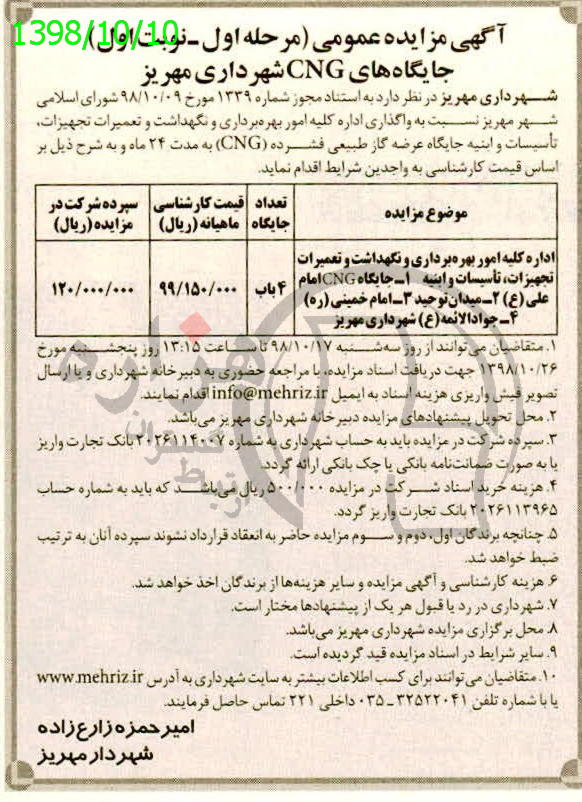 1398/10/10
آگهی مزایده عمومی (مرحله اول ـ نوبت اول)
جایگاه‌های CNG شهرداری مهریز
شهرداری مهریز در نظر دارد به استناد مجوز شماره ۱۳۳۹ مورخ ۹۸/۱۰/۰۹ شورای اسلامی
شهر مهریز نسبت به واگذاری اداره کلیه امور بهره‌برداری و نگهداشت و تعمیرات تجهیزات،
تأسیسات و ابنیه جایگاه عرضه گاز طبیعی فشرده (CNG) به مدت ۲۴ ماه و به شرح ذیل بر
اساس قیمت کارشناسی به واجدین شرایط اقدام نماید.
موضوع مزایده
تعداد جایگاه
قیمت کارشناسی ماهیانه (ریال)
سپرده شرکت در مزایده (ریال)
اداره کلیه امور بهره‌برداری و نگهداشت و تعمیرات
تجهیزات، تأسیسات و ابنیه ۱ـ جایگاه CNG امام
علی (ع) ۲ـ میدان توحید ۳ـ امام خمینی (ره)
۴ـ جوادالائمه (ع) شهرداری مهریز
۴ باب
۹۹/۱۵۰/۰۰۰
۱۲۰/۰۰۰/۰۰۰
۱. متقاضیان می‌توانند از روز سه‌شنبه ۹۸/۱۰/۱۷ تا ساعت ۱۳:۱۵ روز پنجشنبه مورخ
۱۳۹۸/۱۰/۲۶ جهت دریافت اسناد مزایده، با مراجعه حضوری به دبیرخانه شهرداری و یا ارسال
تصویر فیش واریزی هزینه اسناد به ایمیل info@mehriz.ir اقدام نمایند.
۲. محل تحویل پیشنهادهای مزایده دبیرخانه شهرداری مهریز می‌باشد.
۳. سپرده شرکت در مزایده باید به حساب شهرداری به شماره ۲۰۲۶۱۱۴۰۰۷ بانک تجارت واریز
یا به صورت ضمانت‌نامه بانکی یا چک بانکی ارائه گردد.
۴. هزینه خرید اسناد شرکت در مزایده ۵۰۰/۰۰۰ ریال می‌باشد که باید به شماره حساب
۲۰۲۶۱۱۳۹۶۵ بانک تجارت واریز گردد.
۵. چنانچه برندگان اول، دوم و سوم مزایده حاضر به انعقاد قرارداد نشوند سپرده آنان به ترتیب
ضبط خواهد شد.
۶. هزینه کارشناسی و آگهی مزایده و سایر هزینه‌ها از برندگان اخذ خواهد شد.
۷. شهرداری در رد یا قبول هر یک از پیشنهادها مختار است.
۸. محل برگزاری مزایده شهرداری مهریز می‌باشد.
۹. سایر شرایط در اسناد مزایده قید گردیده است.
۱۰. متقاضیان می‌توانند برای کسب اطلاعات بیشتر به سایت شهرداری به آدرس www.mehriz.ir
یا با شماره تلفن ۳۲۵۲۲۰۴۱ ـ ۰۳۵ داخلی ۲۲۱ تماس حاصل فرمایند.
امیرحمزه زارع‌زاده
شهردار مهریز